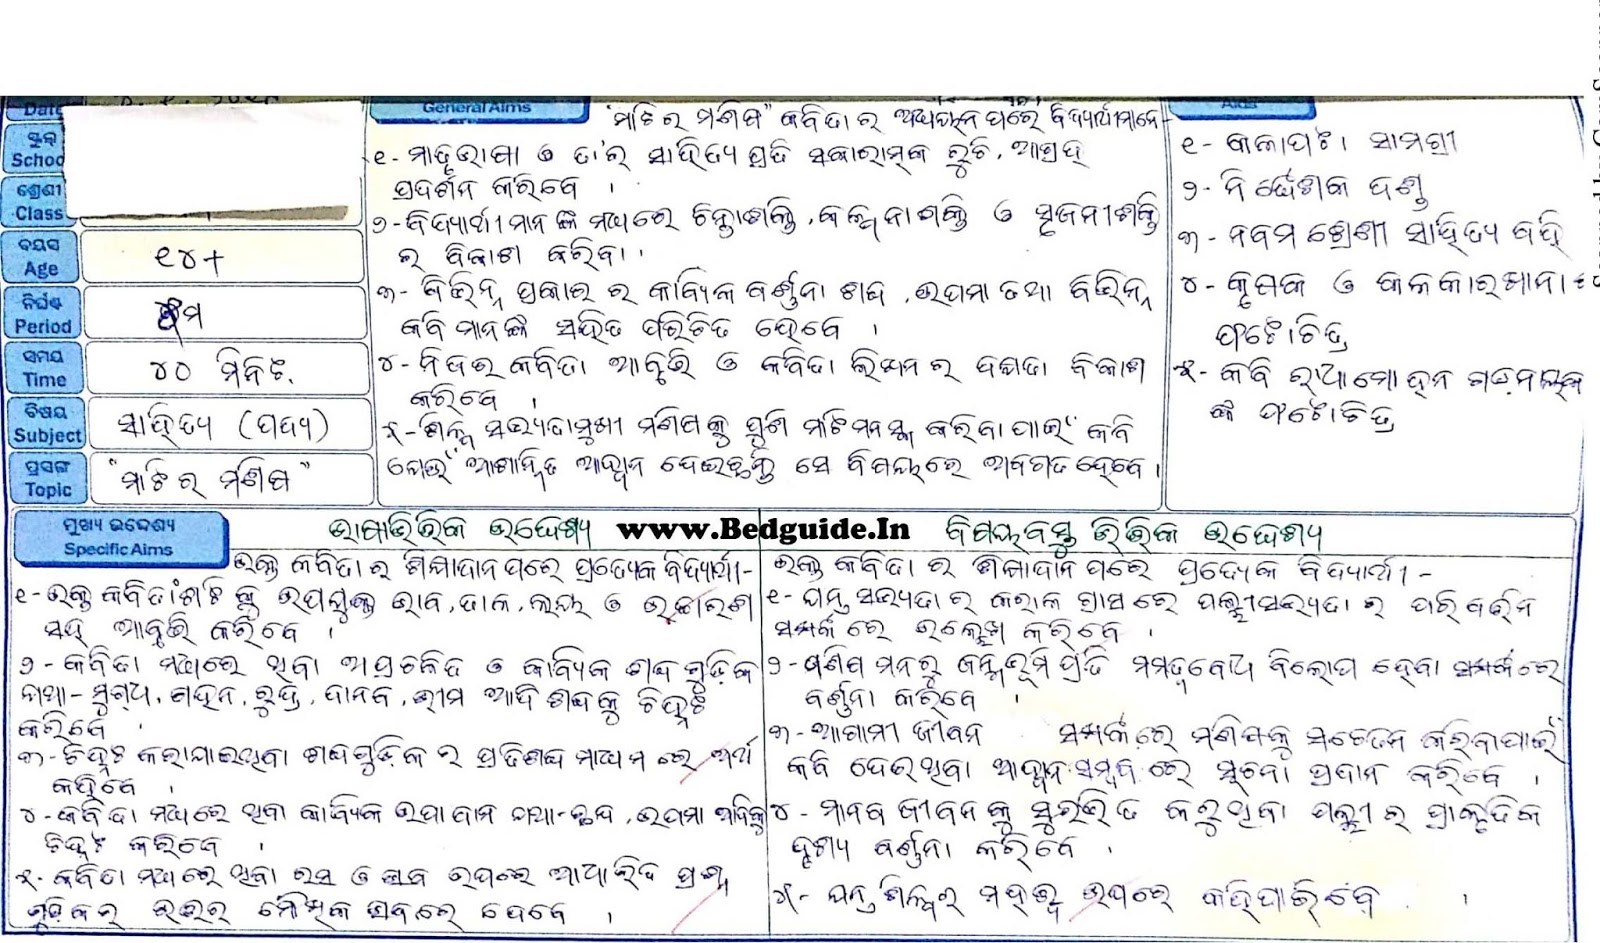 Date
ସ୍କୁଲ
School
ଶ୍ରେଣୀ
Class
ବୟସ
Age
୧୪+
ନିର୍ଘଣ୍ଟ
Period
ସମୟ
Time
୪୦ ମିନିଟ୍.
ବିଷୟ
Subject
ସାହିତ୍ୟ (ପଦ୍ୟ)
ପ୍ରସଙ୍ଗ
Topic
"ମାଟିର ମଣିଷ"
General Aims
"ମାଟିର ମଣିଷ" କବିତାର ଅଧ୍ୟୟନ ପରେ ବିଦ୍ୟାର୍ଥୀମାନେ-
୧- ମାତୃଭାଷା ଓ ତା'ର ସାହିତ୍ୟ ପ୍ରତି ସକାରାତ୍ମକ ରୁଚି, ଆଗ୍ରହ
ପ୍ରଦର୍ଶନ କରିବେ ।
୨- ବିଦ୍ୟାର୍ଥୀମାନଙ୍କ ମଧ୍ୟରେ ଚିନ୍ତାଶକ୍ତି, କଳ୍ପନାଶକ୍ତି ଓ ସୃଜନୀଶକ୍ତି
ର ବିକାଶ କରିବା ।
୩- ବିଭିନ୍ନ ପ୍ରକାର ର କାବ୍ୟିକ ବର୍ଣ୍ଣନା ଶବ୍ଦ, ଉପମା ତଥା ବିଭିନ୍ନ
କବିମାନଙ୍କ ସହିତ ପରିଚିତ ହେବେ ।
୪- ନିଜର କବିତା ଆବୃତ୍ତି ଓ କବିତା ଲିଖନ ର ଦକ୍ଷତା ବିକାଶ
କରିବେ ।
୫- ଶିଳ୍ପ ସଭ୍ୟତାମୁଖୀ ମଣିଷକୁ ପୁଣି ମାଟିମନସ୍କ କରିବା ପାଇଁ କବି
ଯେଉଁ ଆଶାନ୍ୱିତ ଆହ୍ୱାନ ଦେଇଛନ୍ତି ସେ ବିଷୟରେ ଅବଗତ ହେବେ ।
Aids
୧- କଳାପଟା ସାମଗ୍ରୀ
୨- ନିର୍ଦ୍ଦେଶକ ଦଣ୍ଡ
୩- ନବମ ଶ୍ରେଣୀ ସାହିତ୍ୟ ବହି
୪- କୃଷକ ଓ କଳକାରଖାନା
ଫଟୋଚିତ୍ର
୫- କବି ରାଧାମୋହନ ଗଡ଼ନାୟକ
ଙ୍କ ଫଟୋଚିତ୍ର
ମୁଖ୍ୟ ଉଦ୍ଦେଶ୍ୟ
Specific Aims
ଭାଷାଭିତ୍ତିକ ଉଦ୍ଦେଶ୍ୟ
www.Bedguide.In
ବିଷୟବସ୍ତୁ ଭିତ୍ତିକ ଉଦ୍ଦେଶ୍ୟ
ଉକ୍ତ କବିତାର ଶିକ୍ଷାଦାନ ପରେ ପ୍ରତ୍ୟେକ ବିଦ୍ୟାର୍ଥୀ-
୧- ଉକ୍ତ କବିତାଂଶଟିକୁ ଉପଯୁକ୍ତ ଭାବ, ତାଳ, ଲୟ ଓ ଉଚ୍ଚାରଣ
ସହ ଆବୃତ୍ତି କରିବେ ।
୨- କବିତା ମଧ୍ୟରେ ଥିବା ଅପ୍ରଚଳିତ ଓ କାବ୍ୟିକ ଶବ୍ଦ ଗୁଡ଼ିକ
ଯଥା- ମୁଗଧ, ଗହନ, ରୁଦ୍ର, ଦାନବ, ଭୀମ ଆଦି ଶବ୍ଦକୁ ଚିହ୍ନଟ
କରିବେ ।
୩- ଚିହ୍ନଟ କରାଯାଇଥିବା ଶବ୍ଦଗୁଡ଼ିକ ର ପ୍ରତିଶବ୍ଦ ମାଧ୍ୟମ ରେ ଅର୍ଥ
କହିବେ ।
୪- କବିତା ମଧ୍ୟରେ ଥିବା କାବ୍ୟିକ ଉପାଦାନ ଯଥା- ଛନ୍ଦ, ଉପମା ଆଦିକୁ
ଚିହ୍ନଟ କରିବେ ।
୫- କବିତା ମଧ୍ୟରେ ଥିବା ରସ ଓ ଭାବ ଉପରେ ଆଧାରିତ ପ୍ରଶ୍ନ
ଗୁଡ଼ିକର ଉତ୍ତର ମୌଖିକ ଭାବରେ ଦେବେ ।
ଉକ୍ତ କବିତାର ଶିକ୍ଷାଦାନ ପରେ ପ୍ରତ୍ୟେକ ବିଦ୍ୟାର୍ଥୀ-
୧- ଯନ୍ତ୍ର ସଭ୍ୟତାର କରାଳ ଗ୍ରାସରେ ପଲ୍ଲୀସଭ୍ୟତା ର ପରିବର୍ତ୍ତନ
ସମ୍ପର୍କରେ ଉଲ୍ଲେଖ କରିବେ ।
୨- ମଣିଷ ମନରୁ ଜନ୍ମଭୂମି ପ୍ରତି ମମତ୍ୱବୋଧ ବିଲୋପ ହେବା ସମ୍ପର୍କରେ
ବର୍ଣ୍ଣନା କରିବେ ।
୩- ଆଗାମୀ ଜୀବନ ସମ୍ପର୍କରେ ମଣିଷକୁ ସଚେତନ କରିବାପାଇଁ
କବି ଦେଇଥିବା ଆହ୍ୱାନ ସମ୍ବନ୍ଧରେ ସୂଚନା ପ୍ରଦାନ କରିବେ ।
୪- ମାନବ ଜୀବନକୁ ସୁରଭିତ କରୁଥିବା ପଲ୍ଲୀର ପ୍ରାକୃତିକ
ଦୃଶ୍ୟ ବର୍ଣ୍ଣନା କରିବେ ।
୫- ଯନ୍ତ୍ରଶିଳ୍ପର ମହତ୍ତ୍ୱ ଉପରେ କହିପାରିବେ ।